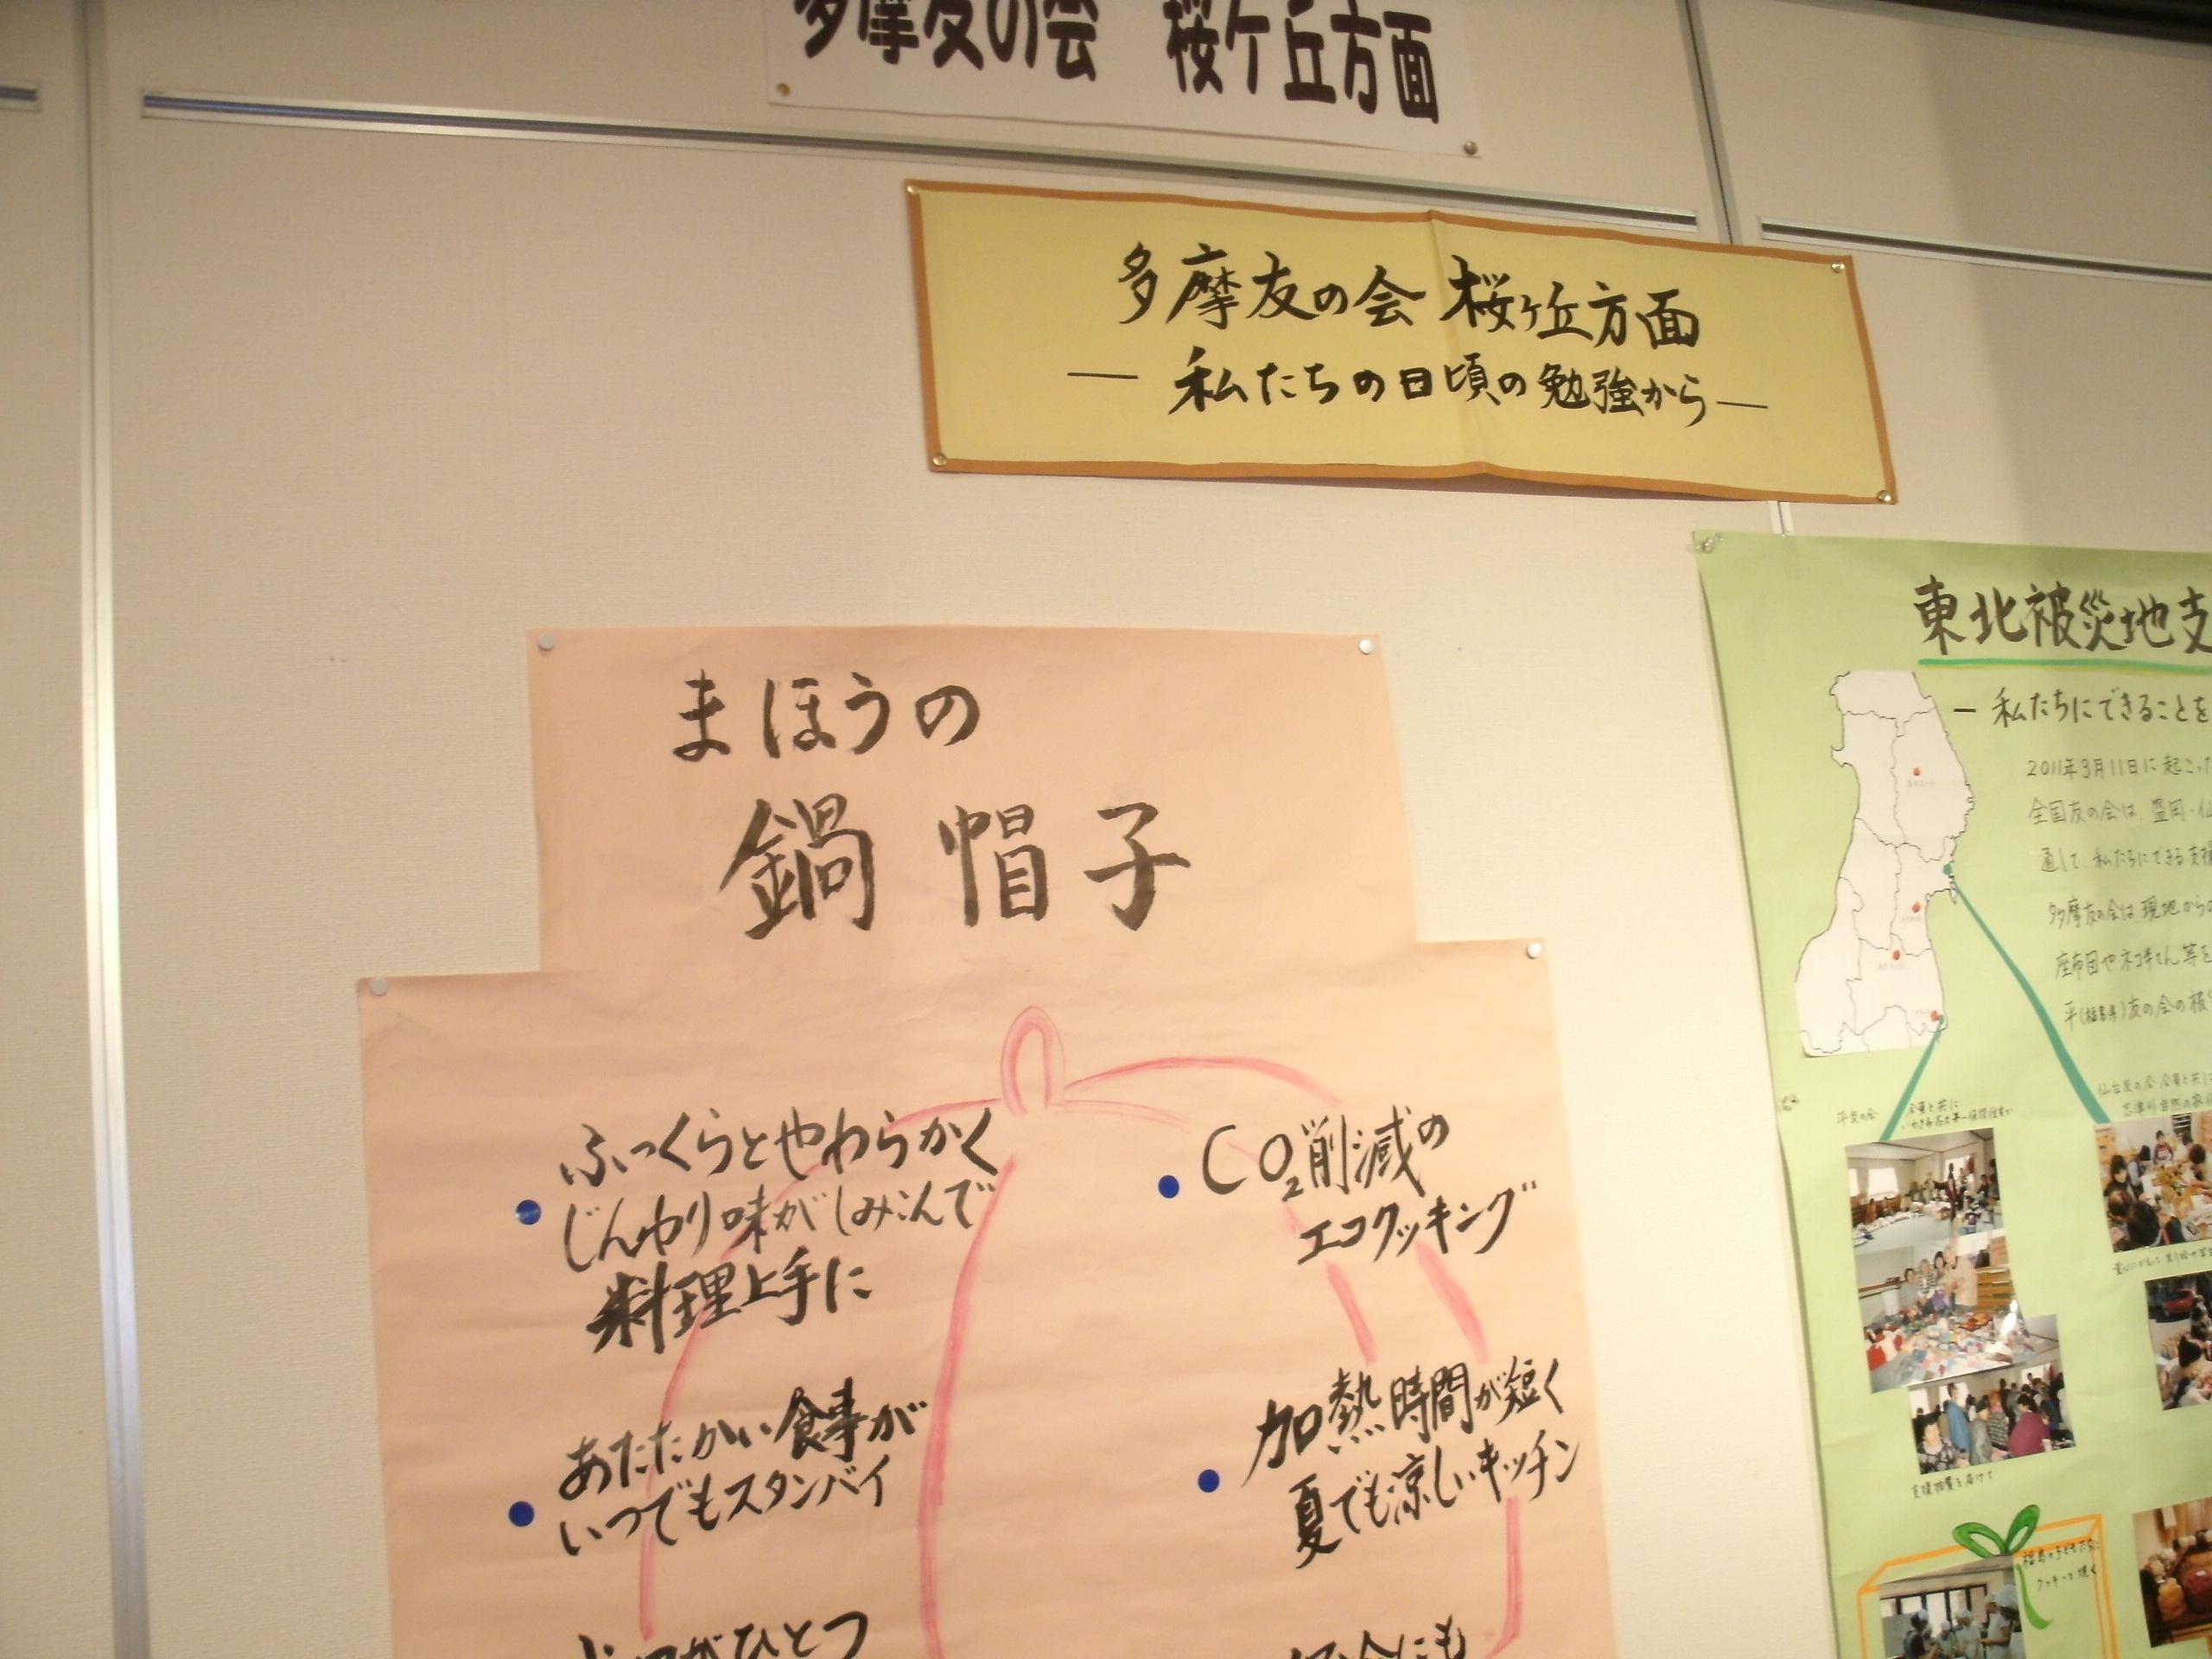 多摩友の会 桜ケ丘方面
多摩友の会 桜ヶ丘方面
― 私たちの日頃の勉強から ―
まほうの
鍋帽子
ふっくらとやわらかく
じんわり味がしみこんで
料理上手に
あたたかい食事が
いつでもスタンバイ
がひとつ
CO₂削減の
エコクッキング
加熱時間が短く
夏でも涼しいキッチン
にも
東北被災地支
― 私たちにできることを
2011年3月11日に起こった
全国友の会は、盛岡・仙
通して、私たちにできる支援
多摩友の会は現地からの
座布団やネコ
平(福島県)友の会の
支援物資を届けて
クッキーを焼く